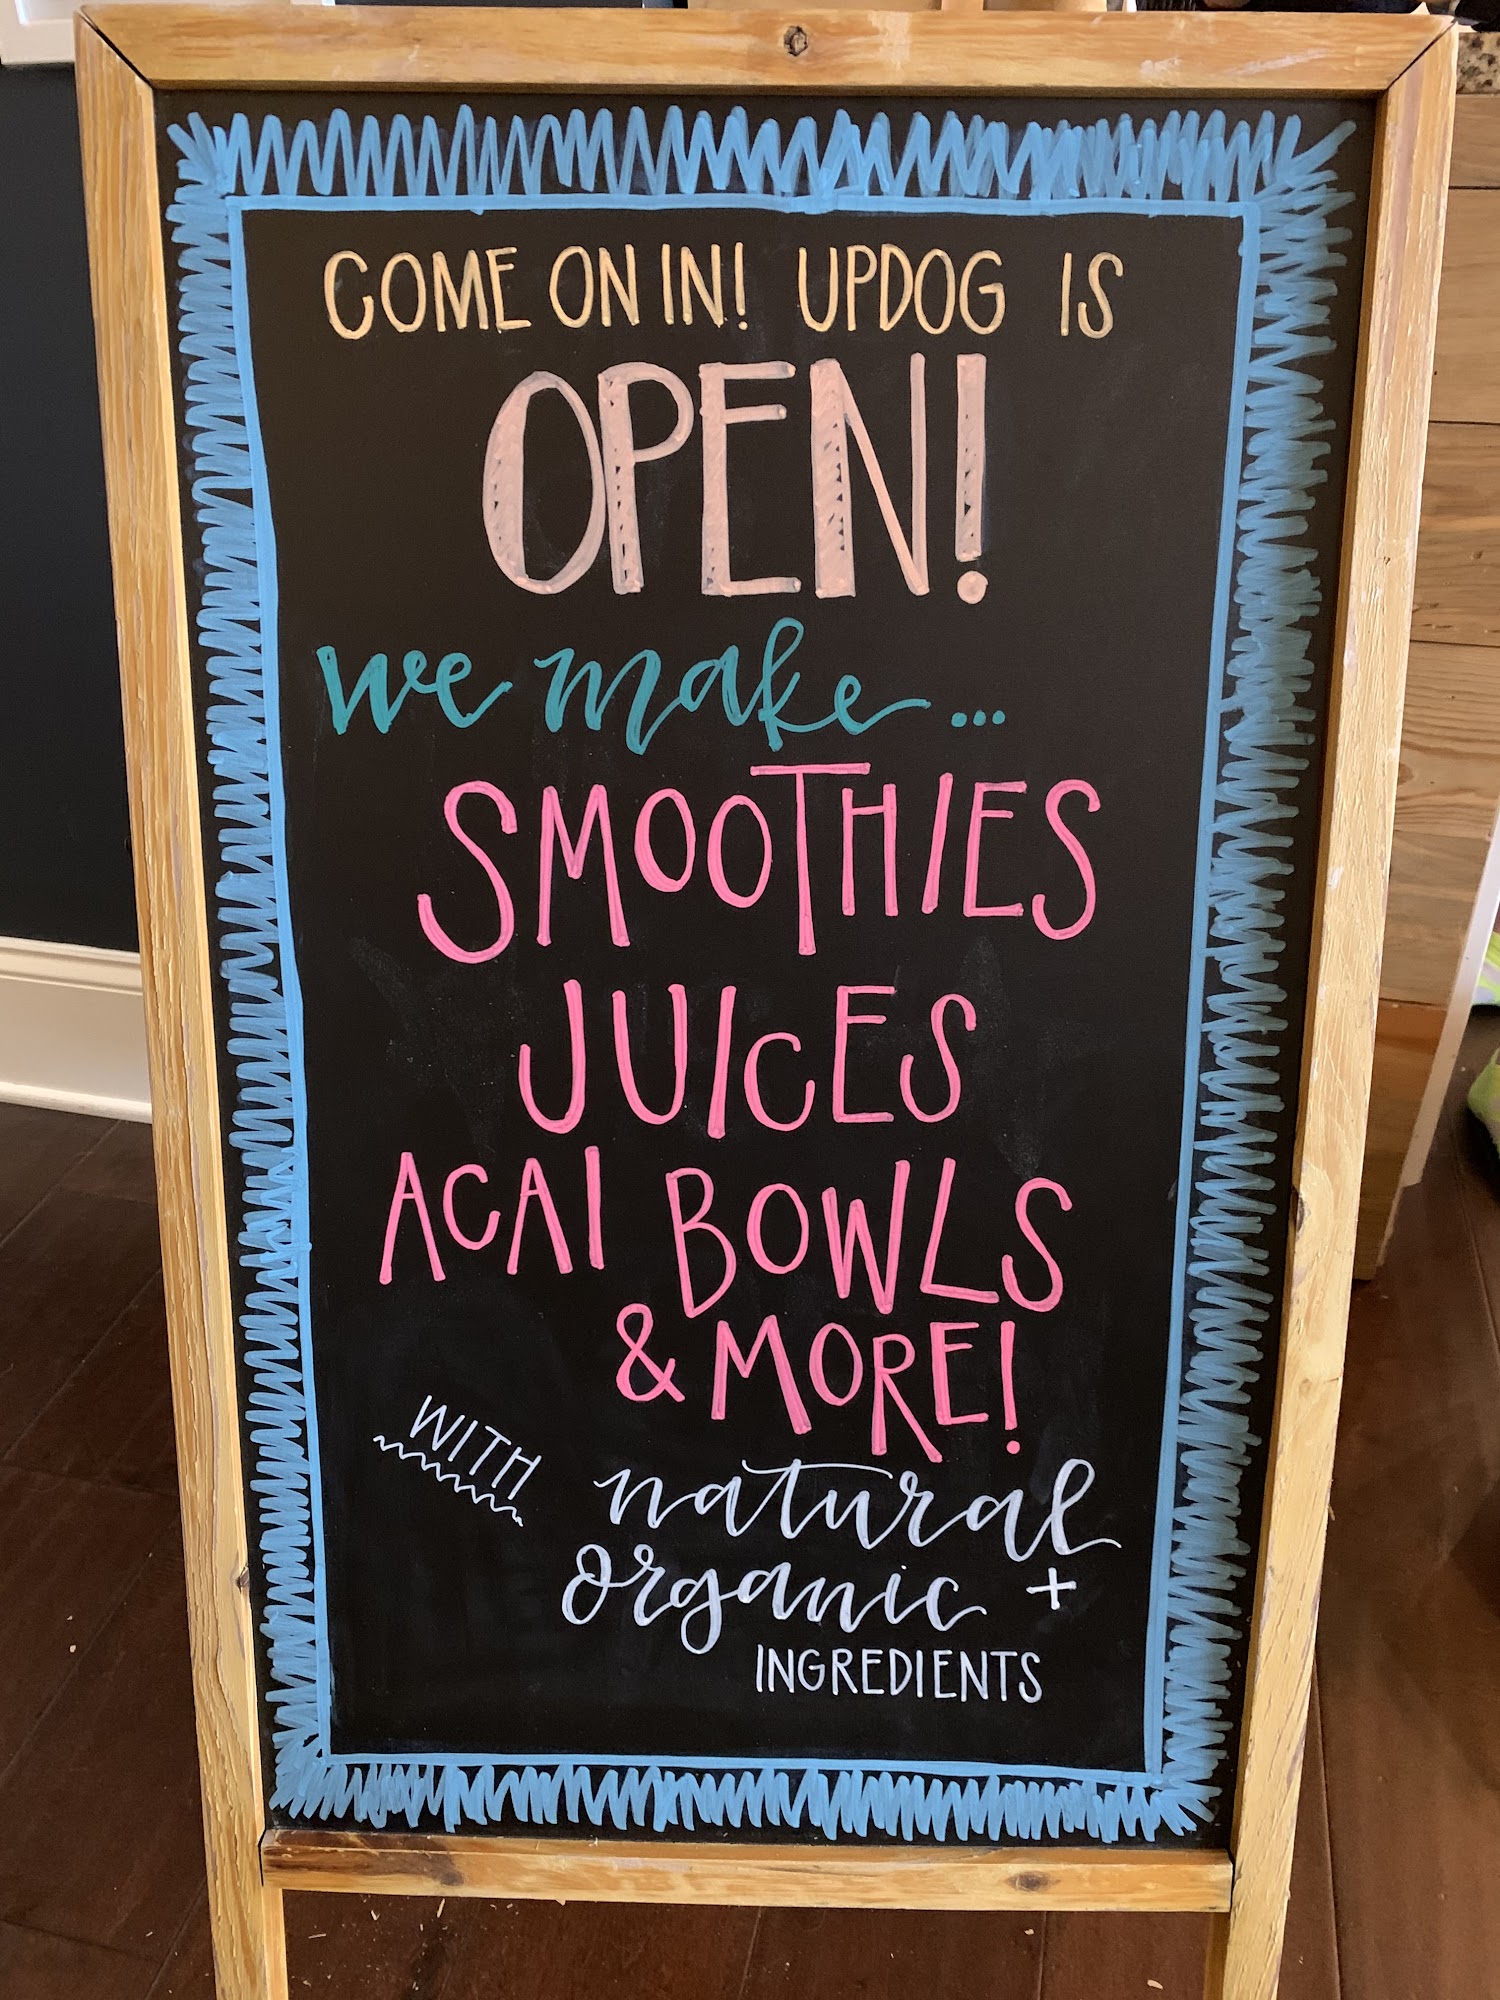 COME ON IN! UPDOG IS
OPEN!
we make...
SMOOTHIES
JUICES
ACAI BOWLS
& MORE!
WITH natural
organic +
INGREDIENTS